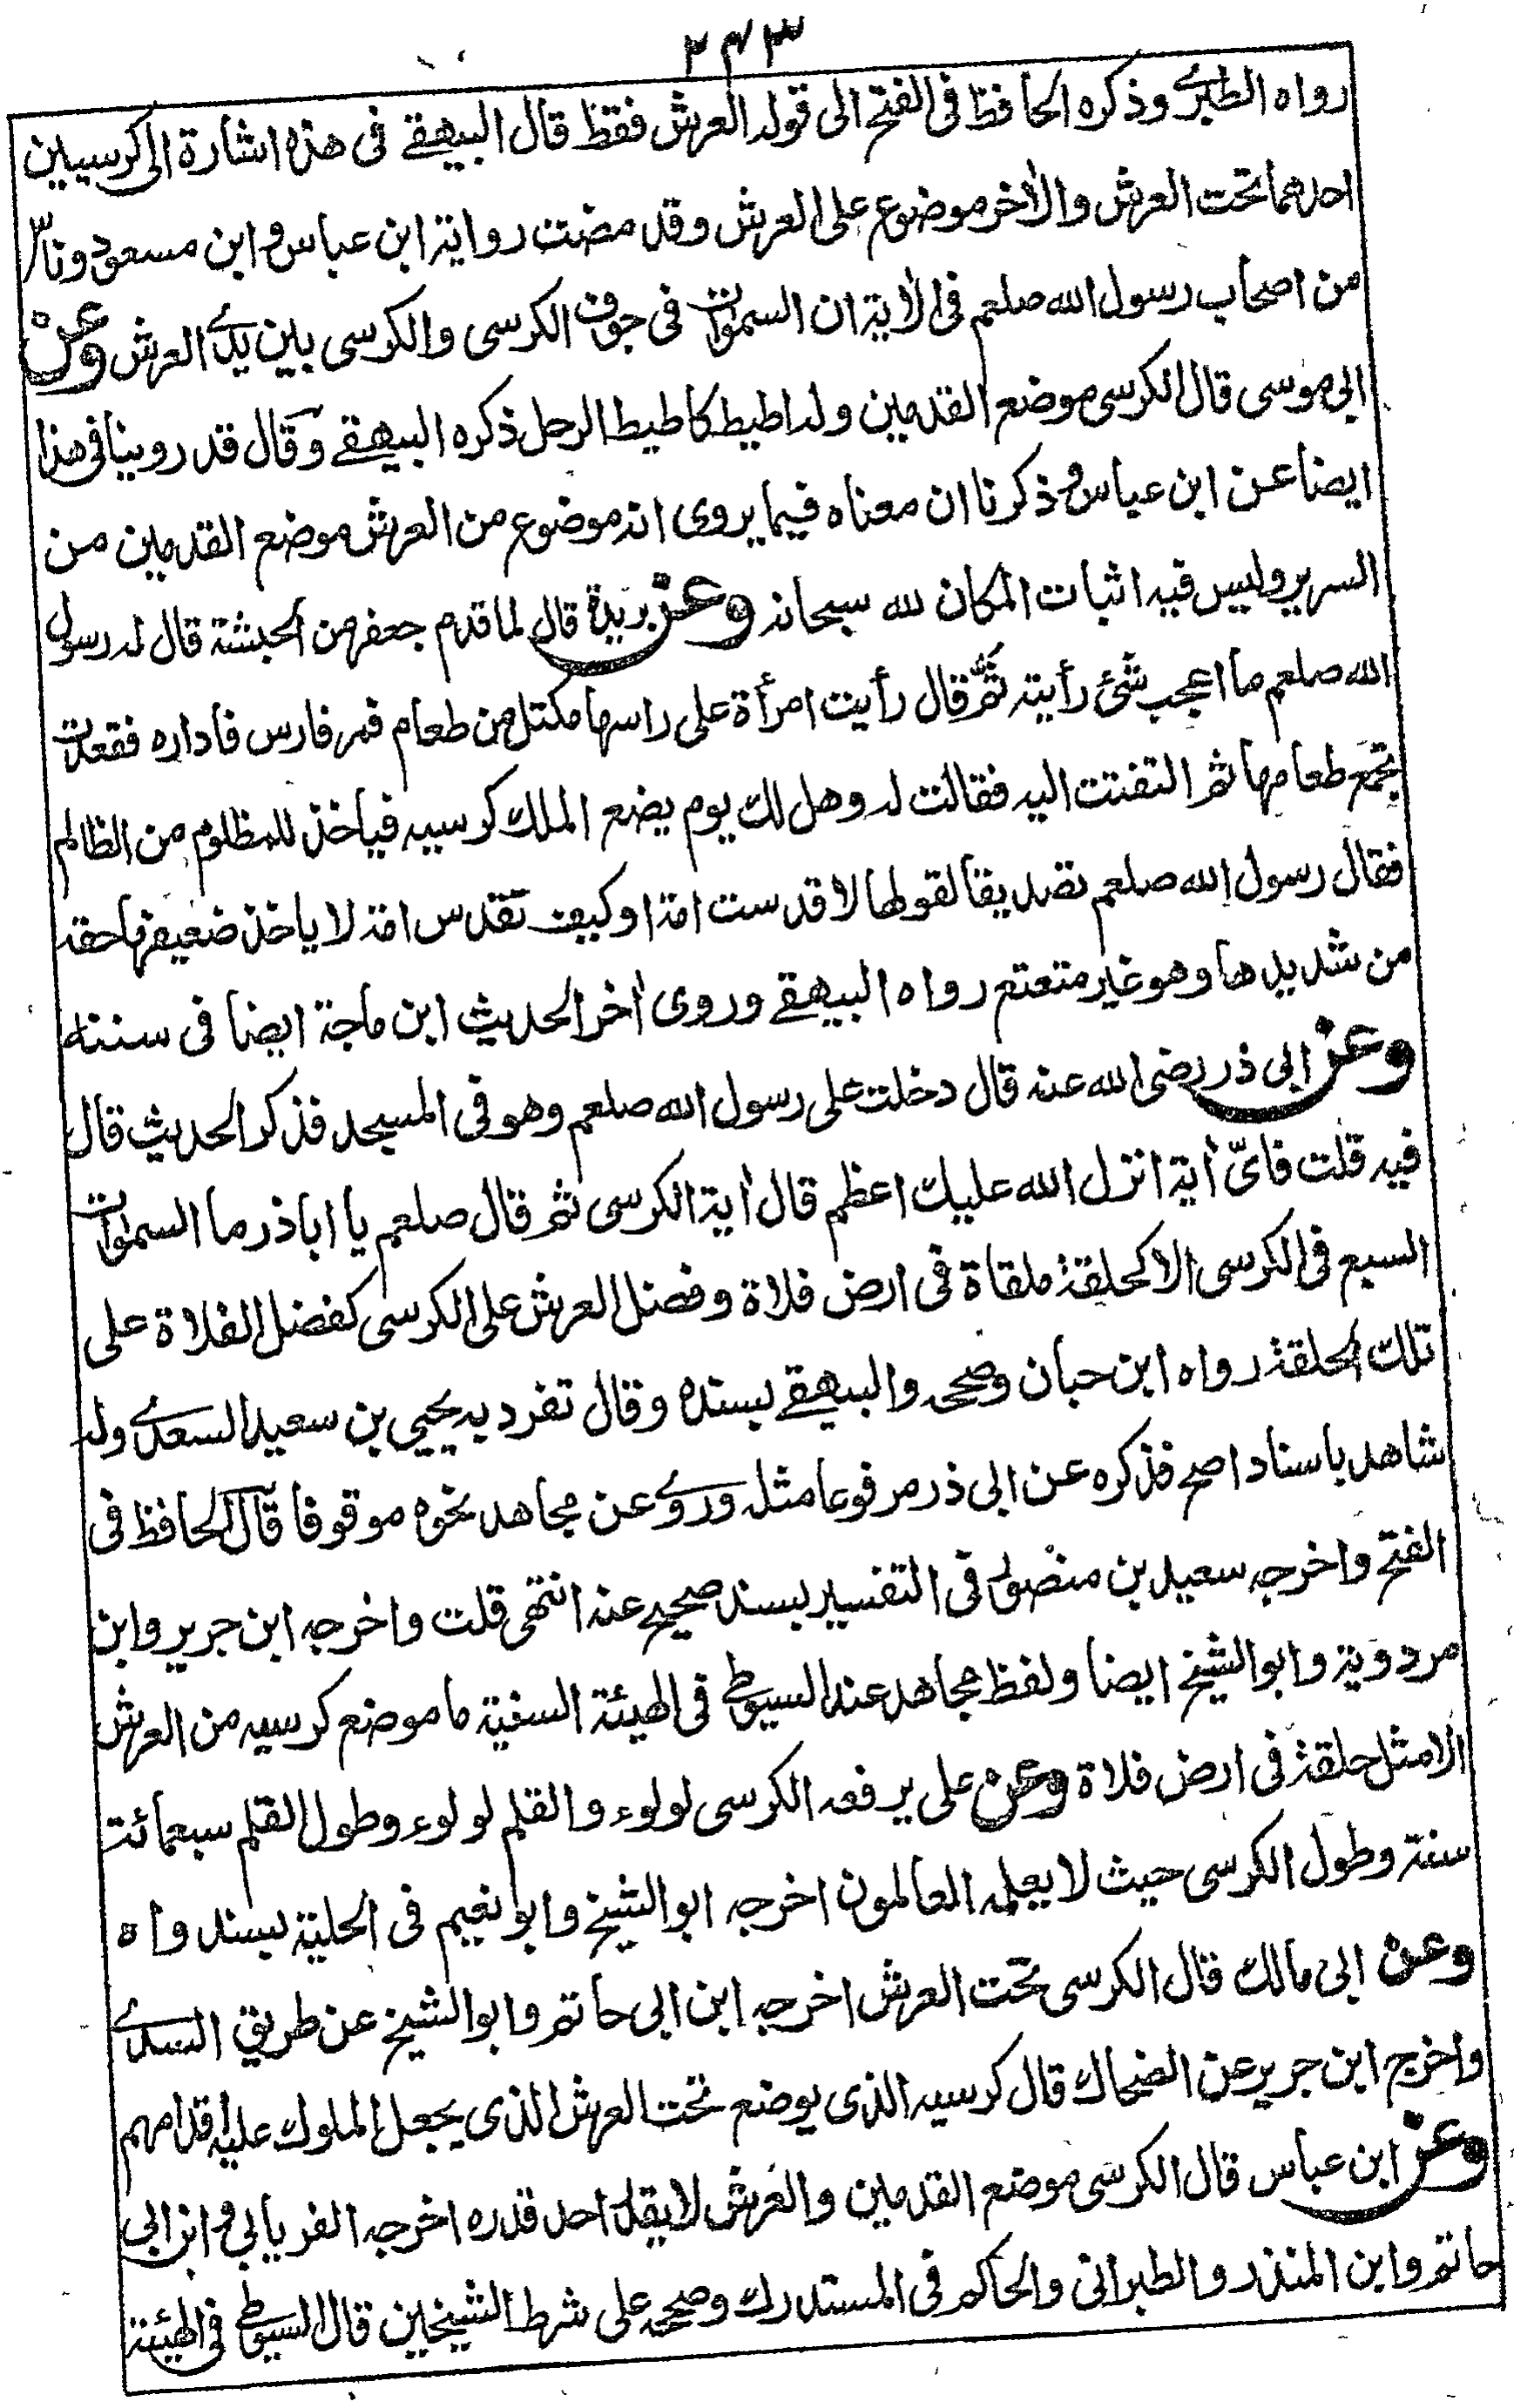 ٢٤٣
رواه الطبرى وذكره الحافظ فى الفتح الى قوله العرش فقط قال البيهقے فى هذه اشارة الى كرسيين
احدهما تحت العرش والاٰخر موضوع على العرش وقد مضت رواية ابن عباس و ابن مسعود وناس
من اصحاب رسول الله صلعم فى الاٰية ان السمٰوات فى جوف الكرسى والكرسى بين يدے العرش وعن
ابى موسى قال الكرسى موضع القدمين وله اطيط كاطيط الرحل ذكره البيهقے وقال قد روينا فى هذا
ايضا عن ابن عباس و ذكرنا ان معناه فيما يروى انه موضوع من العرش موضع القدمين من
السرير وليس فيه اثبات المكان لله سبحانه وعن بريدة قال لما قدم جعفر من الحبشة قال له رسول
الله صلعم ما اعجب شئ رأيته ثَمَّ قال رأيت امرأة على راسها مكتل من طعام فمر فارس فاداره فقعدت
تجمع طعامها ثم التفتت اليه فقالت له وهل لك يوم يضع الملك كرسيه فياخذ للمظلوم من الظالم
فقال رسول الله صلعم تصديقا لقولها لا قدست امة او كيف تقدس امة لا ياخذ ضعيفها حقه
من شديدها وهو غير متعتع رواه البيهقے وروى اٰخر الحديث ابن ماجة ايضا فى سننه
وعن ابى ذر رضى الله عنه قال دخلت على رسول الله صلعم وهو فى المسجد فذكر الحديث قال
فيه قلت فاىّ اٰية انزل الله عليك اعظم قال اٰية الكرسى ثم قال صلعم يا اباذر ما السمٰوات
السبع فى الكرسى الا كحلقة ملقاة فى ارض فلاة وفضل العرش على الكرسى كفضل الفلاة على
تلك الحلقة رواه ابن حبان وصححه والبيهقے بسنده وقال تفرد به يحيى بن سعيد السعدے وله
شاهد باسناد اصح فذكره عن ابى ذر مرفوعا مثله وروے عن مجاهد نحوه موقوفا قال الحافظ فى
الفتح واخرجه سعيد بن منصور فى التفسير بسند صحيح عنه انتهى قلت واخرجه ابن جرير وابن
مردوية وابو الشيخ ايضا ولفظ مجاهد عند السيوطے فى الهيئة السنية ما موضع كرسيه من العرش
الا مثل حلقة فى ارض فلاة وعن على يرفعه الكرسى لولوء والقلم لولوء وطول القلم سبعمائة
سنة وطول الكرسى حيث لا يعلمه العالمون اخرجه ابو الشيخ وابو نعيم فى الحلية بسند واه
وعن ابى مالك قال الكرسى تحت العرش اخرجه ابن ابى حاتم وابو الشيخ عن طريق السدے
واخرج ابن جرير عن الضحاك قال كرسيه الذى يوضع تحت العرش الذى يجعل الملوك عليه اقدامهم
وعن ابن عباس قال الكرسى موضع القدمين والعرش لا يقدر احد قدره اخرجه الفريابى و ابن ابى
حاتم وابن المنذر والطبرانى والحاكم فى المستدرك وصححه على شرط الشيخين قال السيوطے فى الهيئة